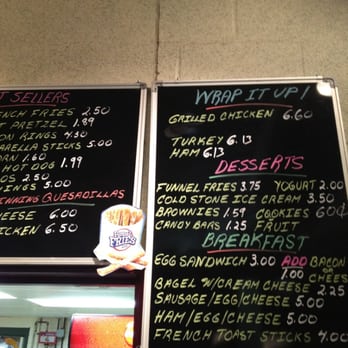 T SELLERS
NCH FRIES 2.50
T PRETZEL 1.89
ON RINGS 4.50
ARELLA STICKS 5.00
ORN 1.60
HOT DOG 1.99
OS 2.50
INGS 5.00
INNING QUESADILLAS
HEESE 6.00
ICKEN 6.50
FRIES
WRAP IT UP!
GRILLED CHICKEN 6.60
TURKEY 6.13
HAM 6.13
DESSERTS
FUNNEL FRIES 3.75 YOGURT 2.00
COLD STONE ICE CREAM 3.50
BROWNIES 1.59 COOKIES 60¢
CANDY BARS 1.25 FRUIT
BREAKFAST
EGG SANDWICH 3.00 ADD BACON
1.00 OR CHEES
BAGEL W/CREAM CHEESE 2.25
SAUSAGE/EGG/CHEESE 5.00
HAM/EGG/CHEESE 5.00
FRENCH TOAST STICKS 4.00